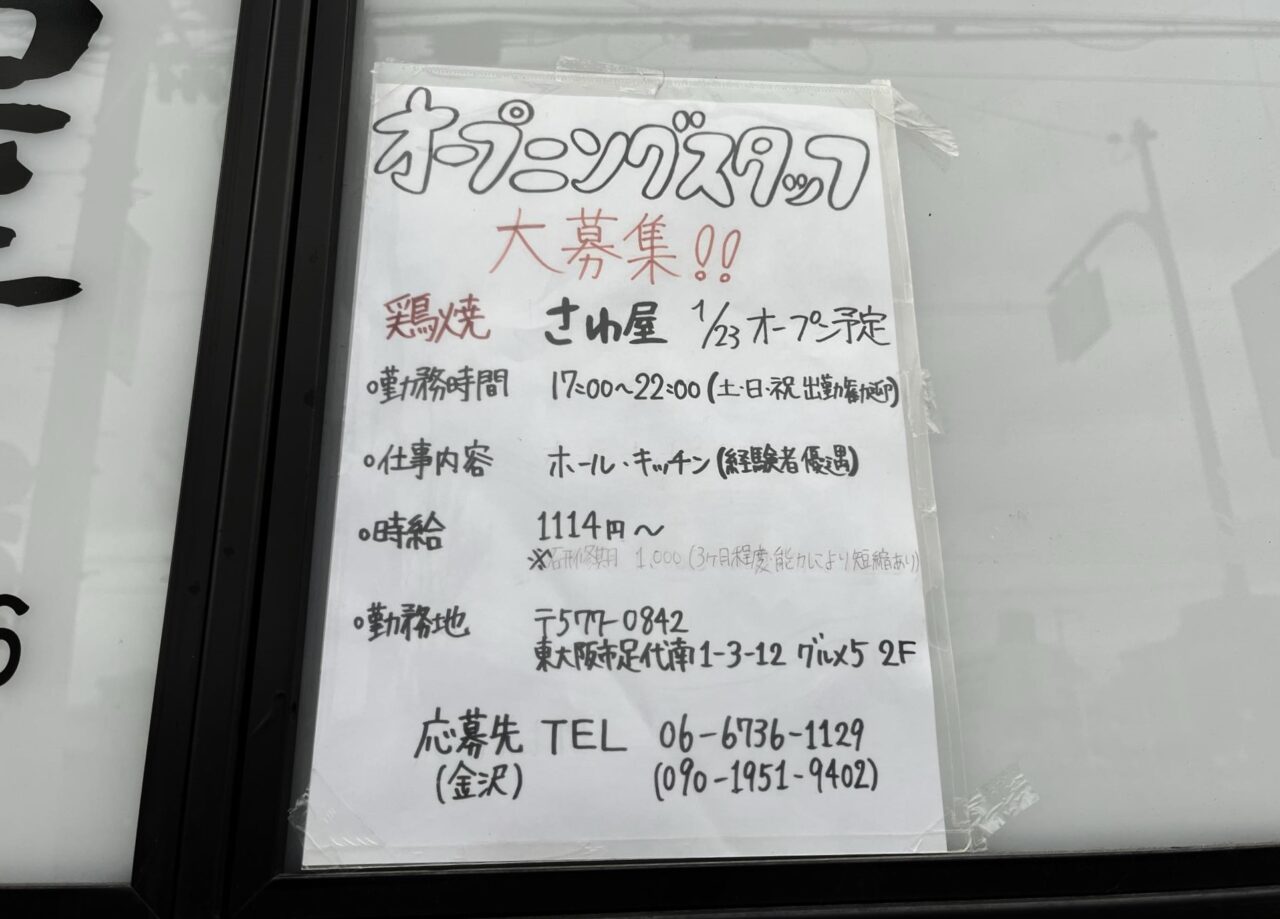 オープニングスタッフ
大募集!!
鶏焼 さわ屋 1/23 オープン予定
○勤務時間 17:00〜22:00(土・日・祝 出勤歓迎)
○仕事内容 ホール・キッチン(経験者優遇)
○時給 1114円〜
※研修期 1,000(3ヶ月程度・能力により短縮あり)
○勤務地 〒577-0842
東大阪市足代南1-3-12 グルメ5 2F
応募先 TEL 06-6736-1129
(金沢) (090-1951-9402)
6